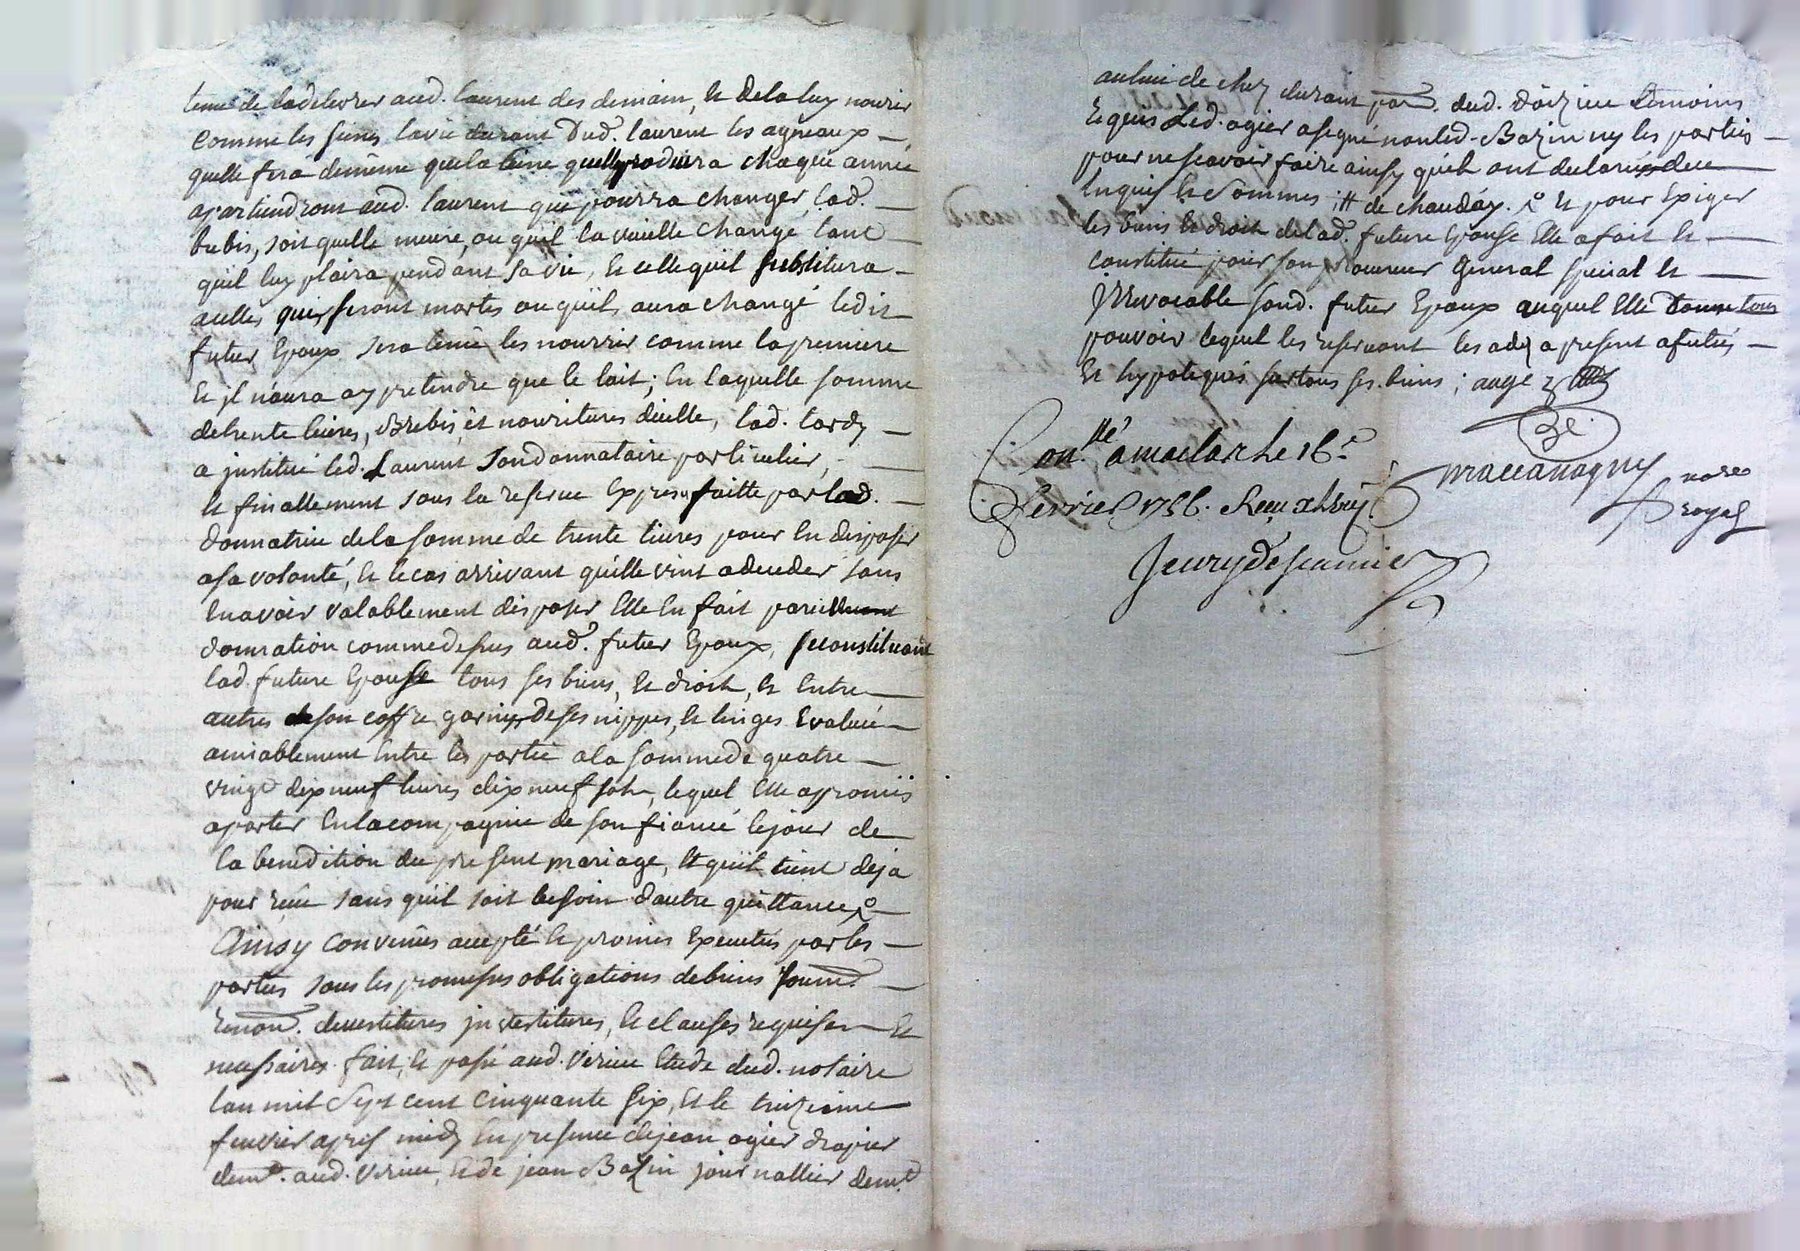 tenue de lad délivrer aud. laurent des demain, et de la luy nourir
comme les sienes la vie durant dud. laurent les agneaux
quelle fera de même que la laine quelle produira chaque année
apartiendront aud. laurent qui pourra changer lad.
bubis, soit quelle meure, ou quil la vieille change tant
quil luy plaira pendant sa vie, et celle quil substitura
acelles qui seront mortes ou quil aura changé ledit
futur Epoux sera tenu les nourrir comme la premiere
et jl naura a y pretendre que le lait; En laquelle somme
de trente livres, Brebis et nourritures dicelle, lad. tardy
a justitué led. Laurent son donnataire particulier,
et finallement sous la reserve Expresse faitte par lad.
donnatrice de la somme de trente livres pour en disposer
a sa volonté, et le cas arrivant quelle vint a deceder sans
en avoir valablement disposer Elle en fait pareillement
donnation comme dessus aud. futur Epoux, se constituant
lad. future Epouse tous ses biens, et droits, et Entre
autres de son coffre garny de ses nippes, et linges Evalué
amiablement Entre les partie a la somme de quatre
vingt dix neuf livres dix neuf sols, lequel Elle a promis
aporter En la compagnie de son fiancé le jour de
la benedition du present mariage, et quil tient deja
pour reçu sans quil soit besoin dautre quittance,
Ainsy convenus accepté et promis Executés par les
parties sous les promesses obligations de biens soumo.
renon. devestitures jnvestitures, et clauses requises et
necessaires. fait, et passé aud. virieu Etude dud. notaire
lan mil sept cent cinquante six, et le treizieme
fevrier apres midy En presence de jean ogier drapier
demt. aud. virieu, et de jean Bazin journallier demt
au lieu de chez durant par. dud. doizieu temoins
requis Led. ogier a signé non led. Bazin ny les parties
pour ne scavoir faire ainsy quils ont declaré de ce
Enquis et sommés ; et pour Exiger
les biens et droits de lad. future Epouse Elle a fait et
constitué pour son procureur General special et
jrrevocable sond. futur Epoux auquel Elle donne tous
pouvoir lequel les recevant les a dez a present assurés
et hypotequés sur tous ses biens;
Conllé a maclas le 16e
fevrier 1756. Reçu
maccanagny nore
royal